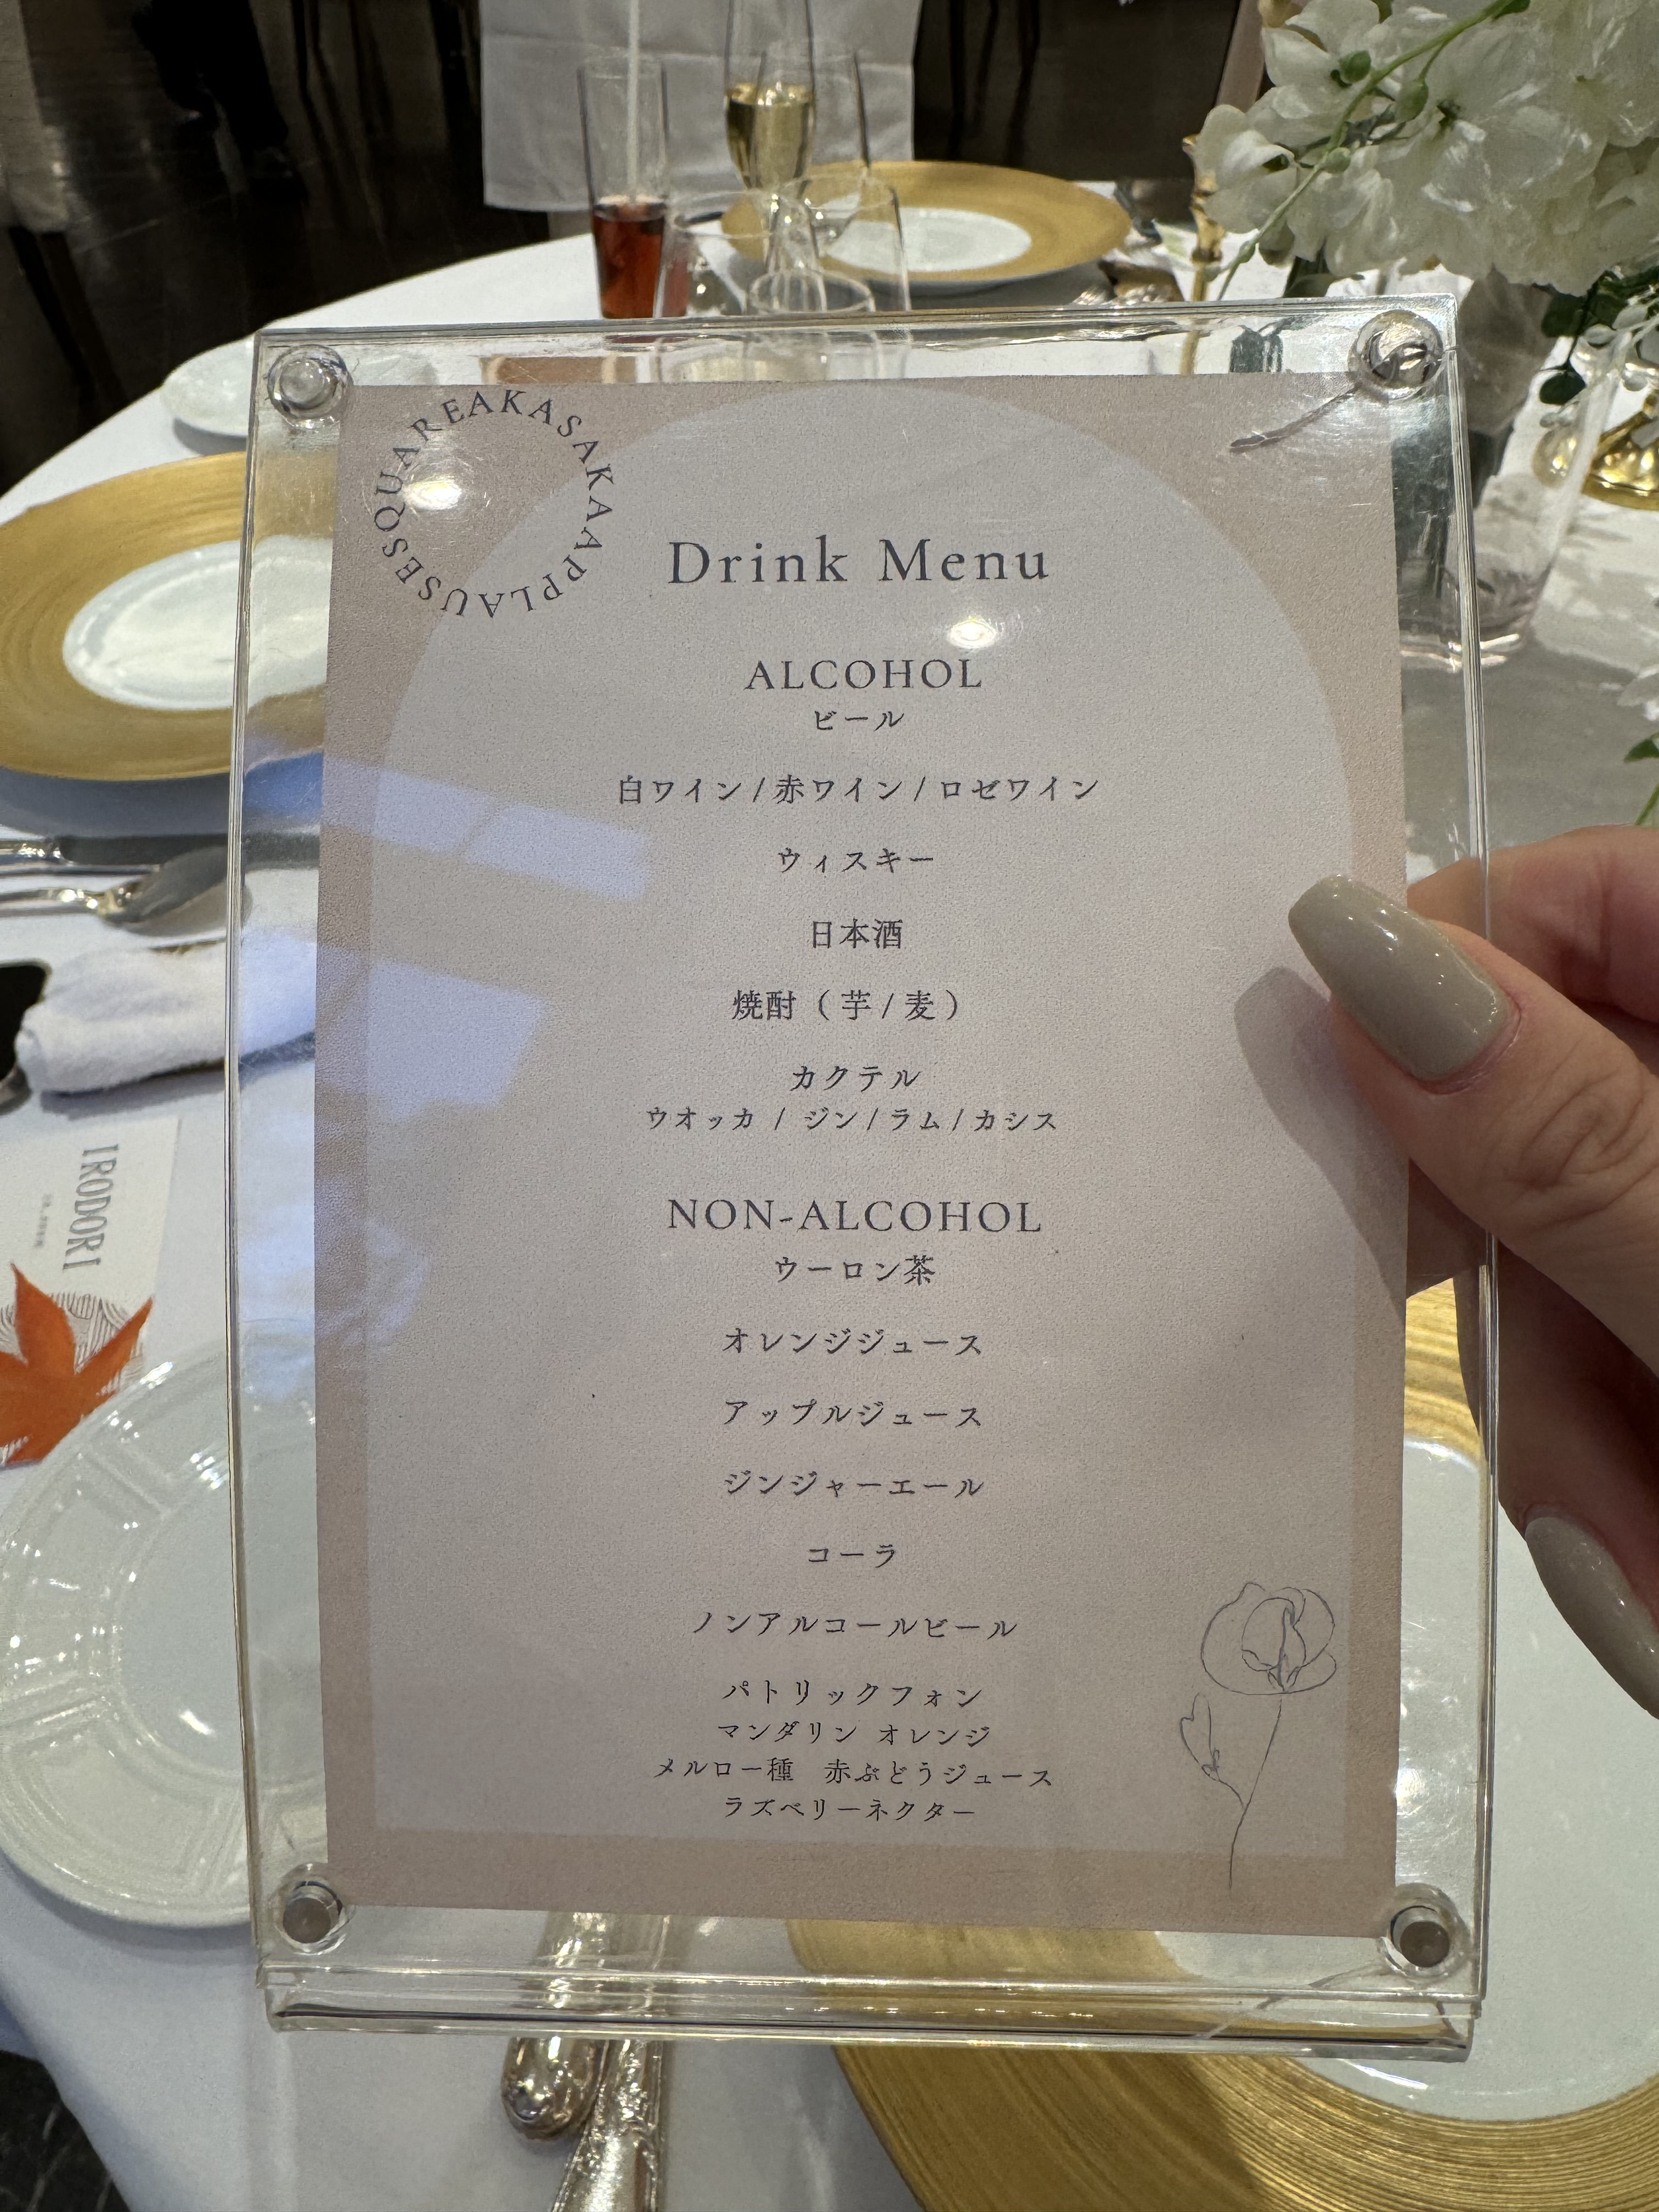 AKASAKA APPLAUSE SQUARE
Drink Menu
ALCOHOL
ビール
白ワイン / 赤ワイン / ロゼワイン
ウィスキー
日本酒
焼酎（ 芋 / 麦 ）
カクテル
ウオッカ / ジン / ラム / カシス
NON-ALCOHOL
ウーロン茶
オレンジジュース
アップルジュース
ジンジャーエール
コーラ
ノンアルコールビール
パトリックフォン
マンダリン オレンジ
メルロー種 赤ぶどうジュース
ラズベリーネクター
IRODORI